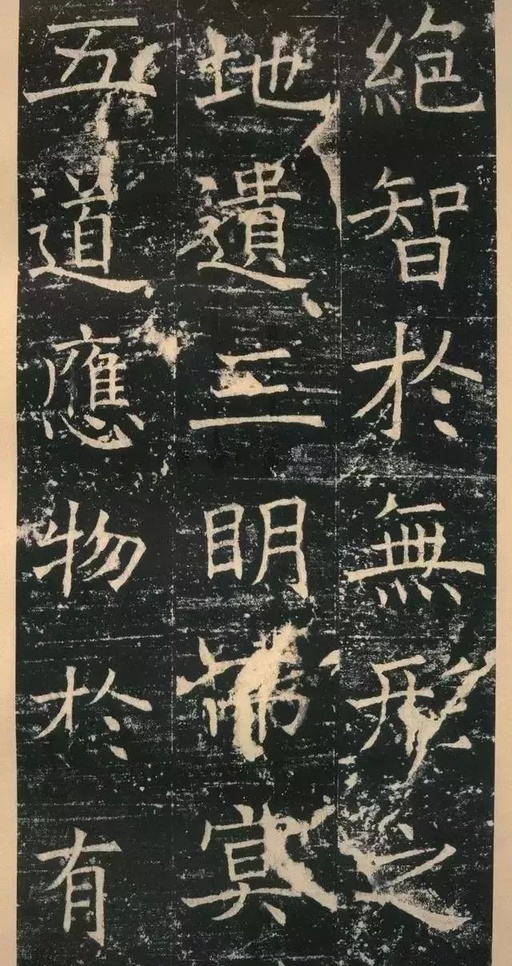 絶智於無形之
地遺三眀冥
五道應物於有